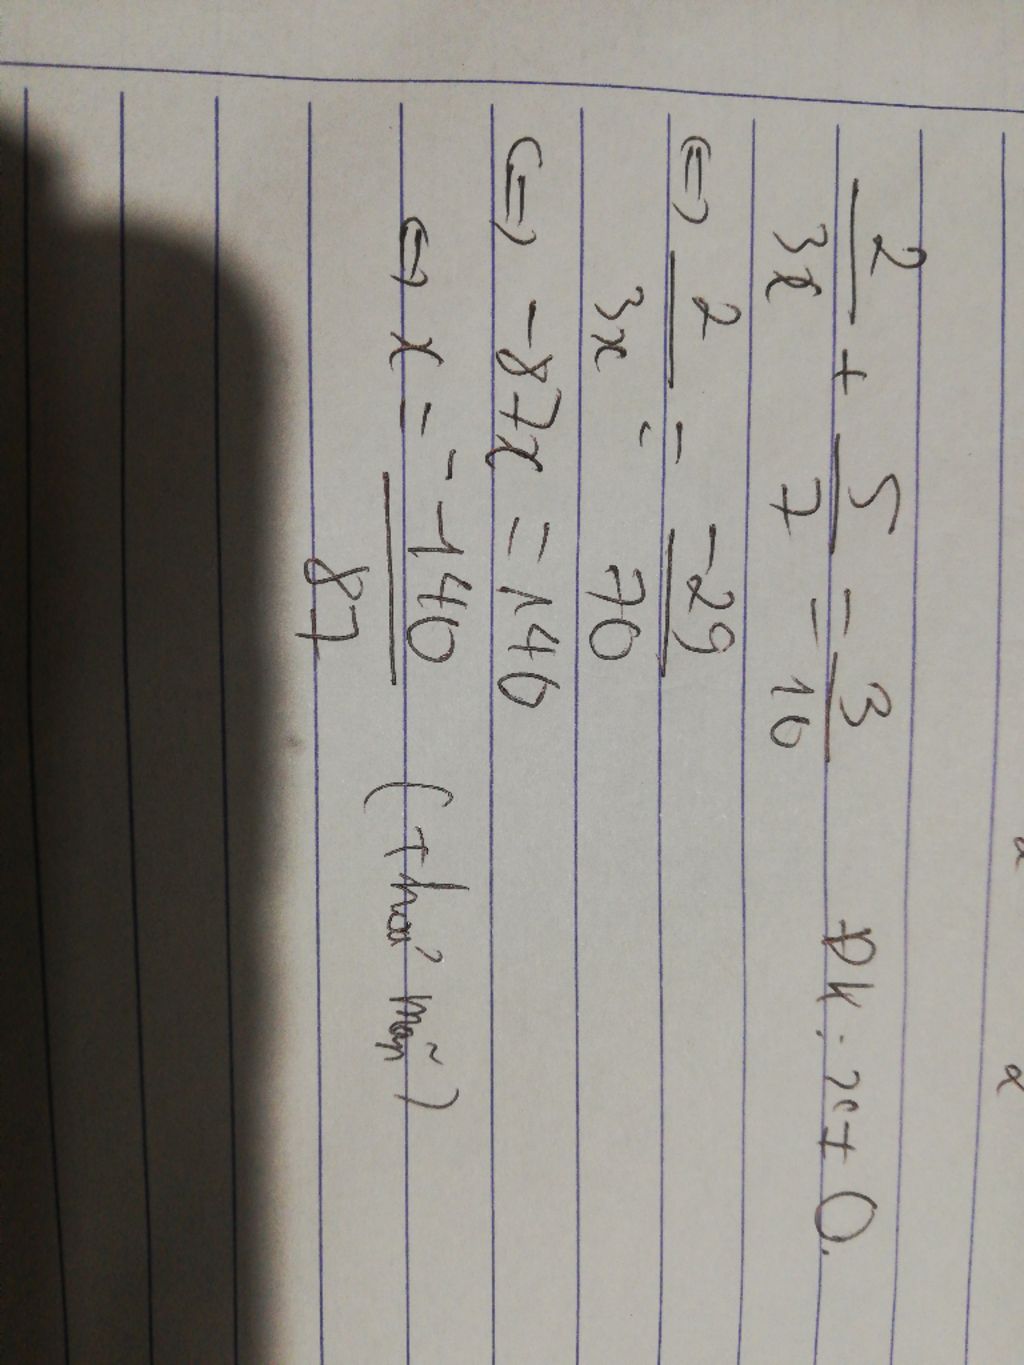 2/3x + 5/7 = 3/10 ĐK: x ≠ 0.
<=> 2/3x = -29/70
<=> -87x = 140
<=> x = -140/87 (thoả mãn)